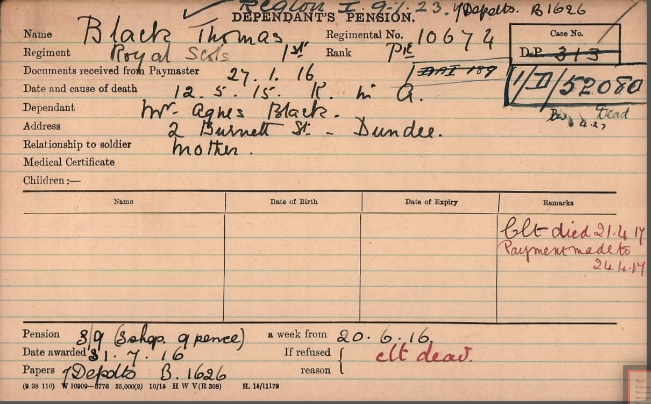 Region I. 9.1.23. Depdts. B1626
DEPENDANT'S PENSION.
Name Black Thomas Regimental No. 10674
Case No.
D.P. 313
Regiment Royal Scots 1st Rank Pte
Documents received from Paymaster 27.1.16
1/D/52080
Date and cause of death 12.5.15. K. in A.
Dead
4.27
Dependant Mrs. Agnes Black.
Address 2 Burnett St. - Dundee.
Relationship to soldier Mother.
Medical Certificate
Children:—
Name Date of Birth Date of Expiry Remarks
Clt died 21.4.17
Payment made to
24.4.17
Pension 3/9 (3 shgs. 9 pence) a week from 20.6.16.
Date awarded 31.7.16 If refused clt dead.
Papers /Depdts B.1626 reason
(9 38 110) W 10909—5776 35,000(2) 10/15 H W V(R 308) H. 15/11179